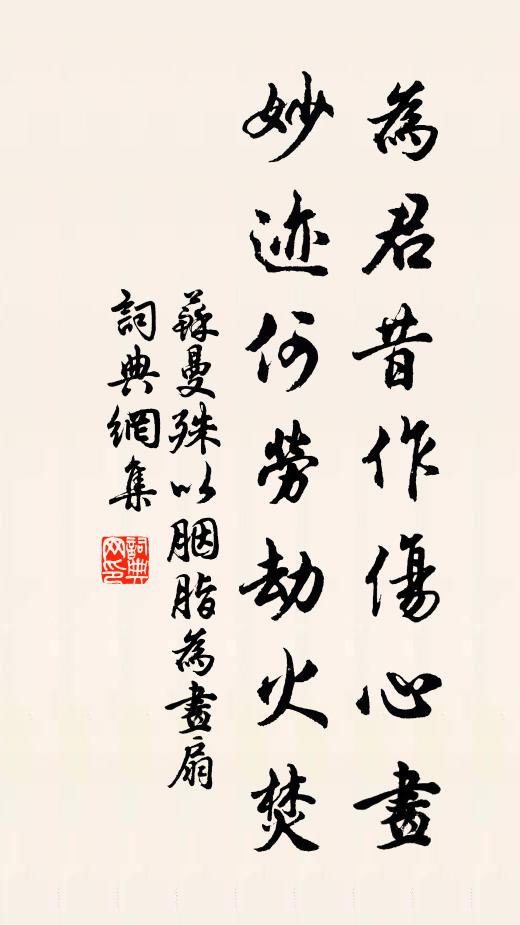 為君昔作傷心畫
妙迹何勞劫火焚
蘇曼殊以胭脂為畫扇
詞典網集
詞典网印